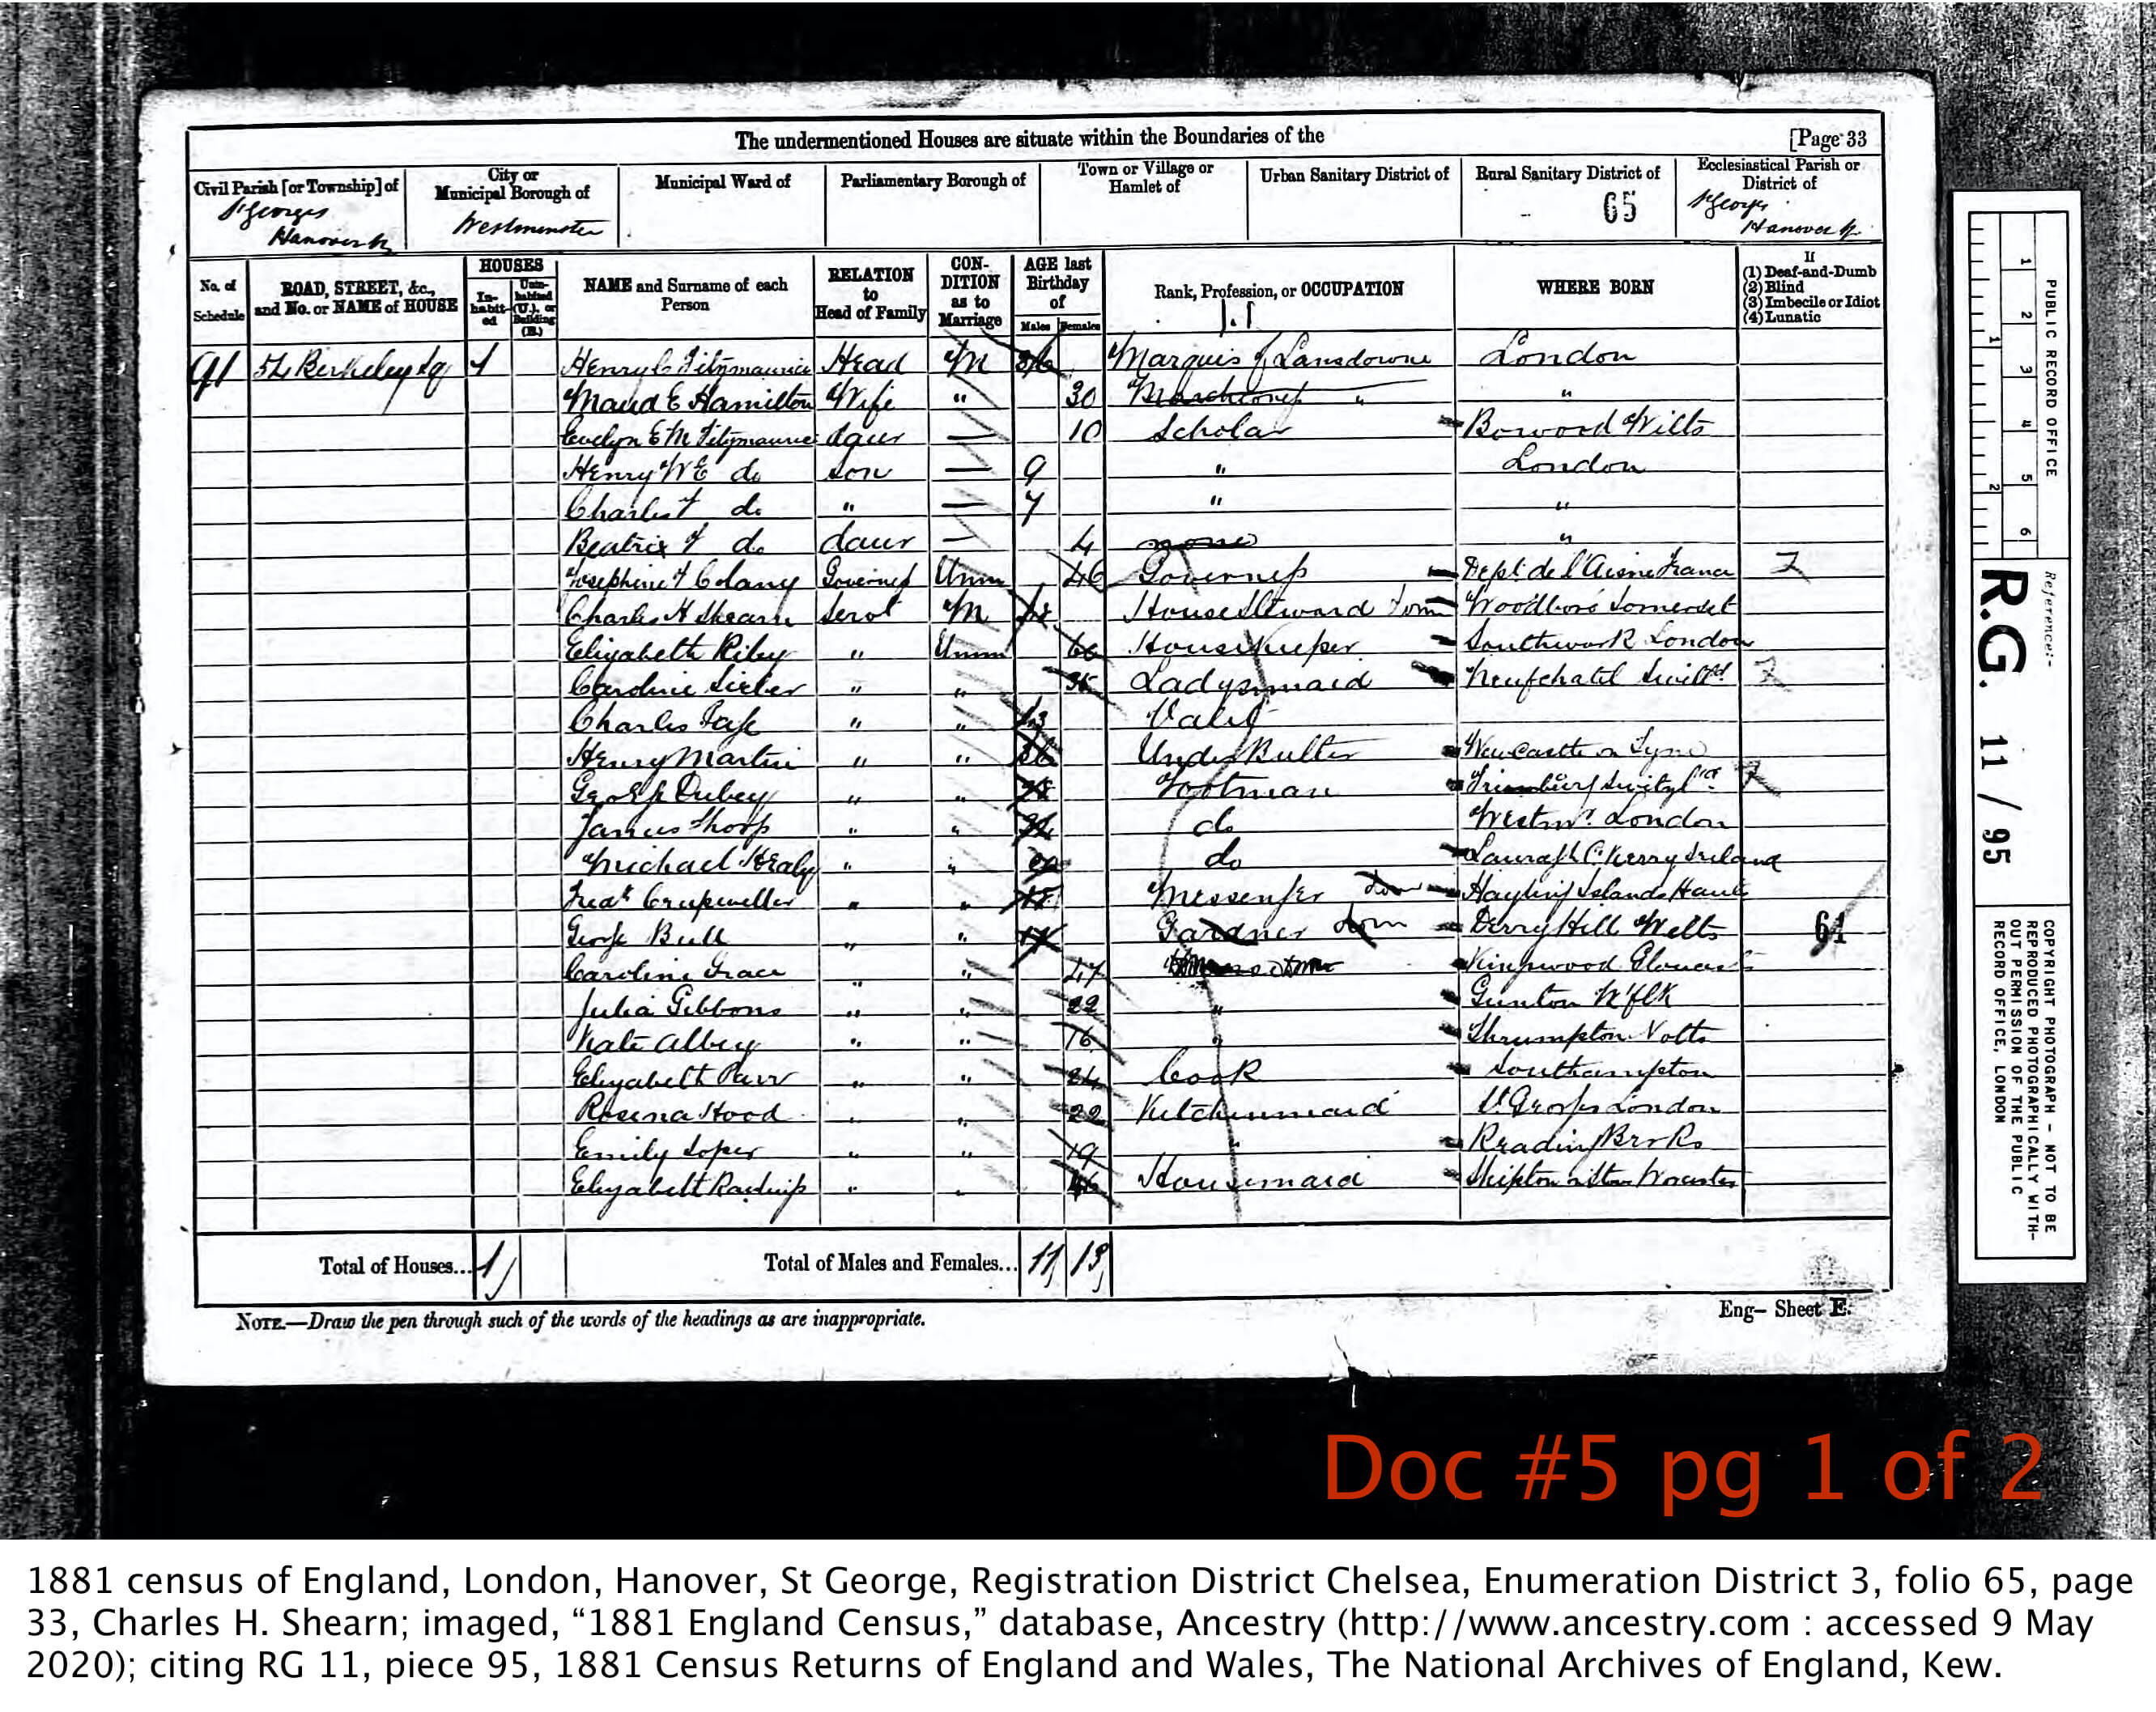 The undermentioned Houses are situate within the Boundaries of the [Page 33
Civil Parish [or Township] of City or Municipal Borough of Municipal Ward of Parliamentary Borough of Town or Village or Hamlet of Urban Sanitary District of Rural Sanitary District of Ecclesiastical Parish or District of
St Georges Hanover Westminster 65 St Georges Hanover
No. of Schedule ROAD, STREET, &c., and No. or NAME of HOUSE HOUSES Inhabited Uninhabited (U.), or Building (B.) NAME and Surname of each Person RELATION to Head of Family CONDITION as to Marriage AGE last Birthday of Males Females Rank, Profession, or OCCUPATION WHERE BORN If (1) Deaf-and-Dumb (2) Blind (3) Imbecile or Idiot (4) Lunatic
91 54 Berkeley Sq 1 Henry C Fitzmaurice Head M 36 Marquis of Lansdowne London
Maud E Hamilton Wife " 30 Marchioness " "
Evelyn E M Fitzmaurice daur — 10 Scholar Bowood Wilts
Henry W E do son — 9 " London
Charles F do " — 7 " "
Beatrix F do daur — 4 none "
Josephine F Colany Governess Unm 46 Governess Dept de l'Aisne France
Charles H Shearn Servt M House Steward Dom Woodboro Somerset
Elizabeth Riley " Unm 66 Housekeeper Southwark London
Caroline Sieber " " 35 Ladysmaid Neufchatel Switzd
Charles " " Valet
Henry Martin " " 36 Under Butler Newcastle on Tyne
George Dubey " " 28 Footman
James Thorp " " do Westmr London
Michael Healy " " do Co Kerry Ireland
Fredk " " Messenger Dom Hayling Island Hants
George Bull " " Gardner Dom Derry Hill Wilts 61
Caroline Grace " " 47 Kingswood
Julia Gibbons " " 22 " Gunton N'flk
Kate Albey " " 16 " Thrumpton Notts
Elizabeth Parr " " 24 Cook Southampton
Rosena Hood " " 22 Kitchenmaid St Georges London
Emily Soper " " 19 " Reading Berks
Elizabeth " " 46 Housemaid Shipton on Stour Worcester
Total of Houses... 1 Total of Males and Females... 11 13
NOTE.—Draw the pen through such of the words of the headings as are inappropriate. Eng— Sheet E.
1 2 3 4 5 6
1 2
PUBLIC RECORD OFFICE
Reference:-
R.G. 11 / 95
COPYRIGHT PHOTOGRAPH - NOT TO BE
REPRODUCED PHOTOGRAPHICALLY WITH-
OUT PERMISSION OF THE PUBLIC
RECORD OFFICE, LONDON
Doc #5 pg 1 of 2
1881 census of England, London, Hanover, St George, Registration District Chelsea, Enumeration District 3, folio 65, page
33, Charles H. Shearn; imaged, “1881 England Census,” database, Ancestry (http://www.ancestry.com : accessed 9 May
2020); citing RG 11, piece 95, 1881 Census Returns of England and Wales, The National Archives of England, Kew.